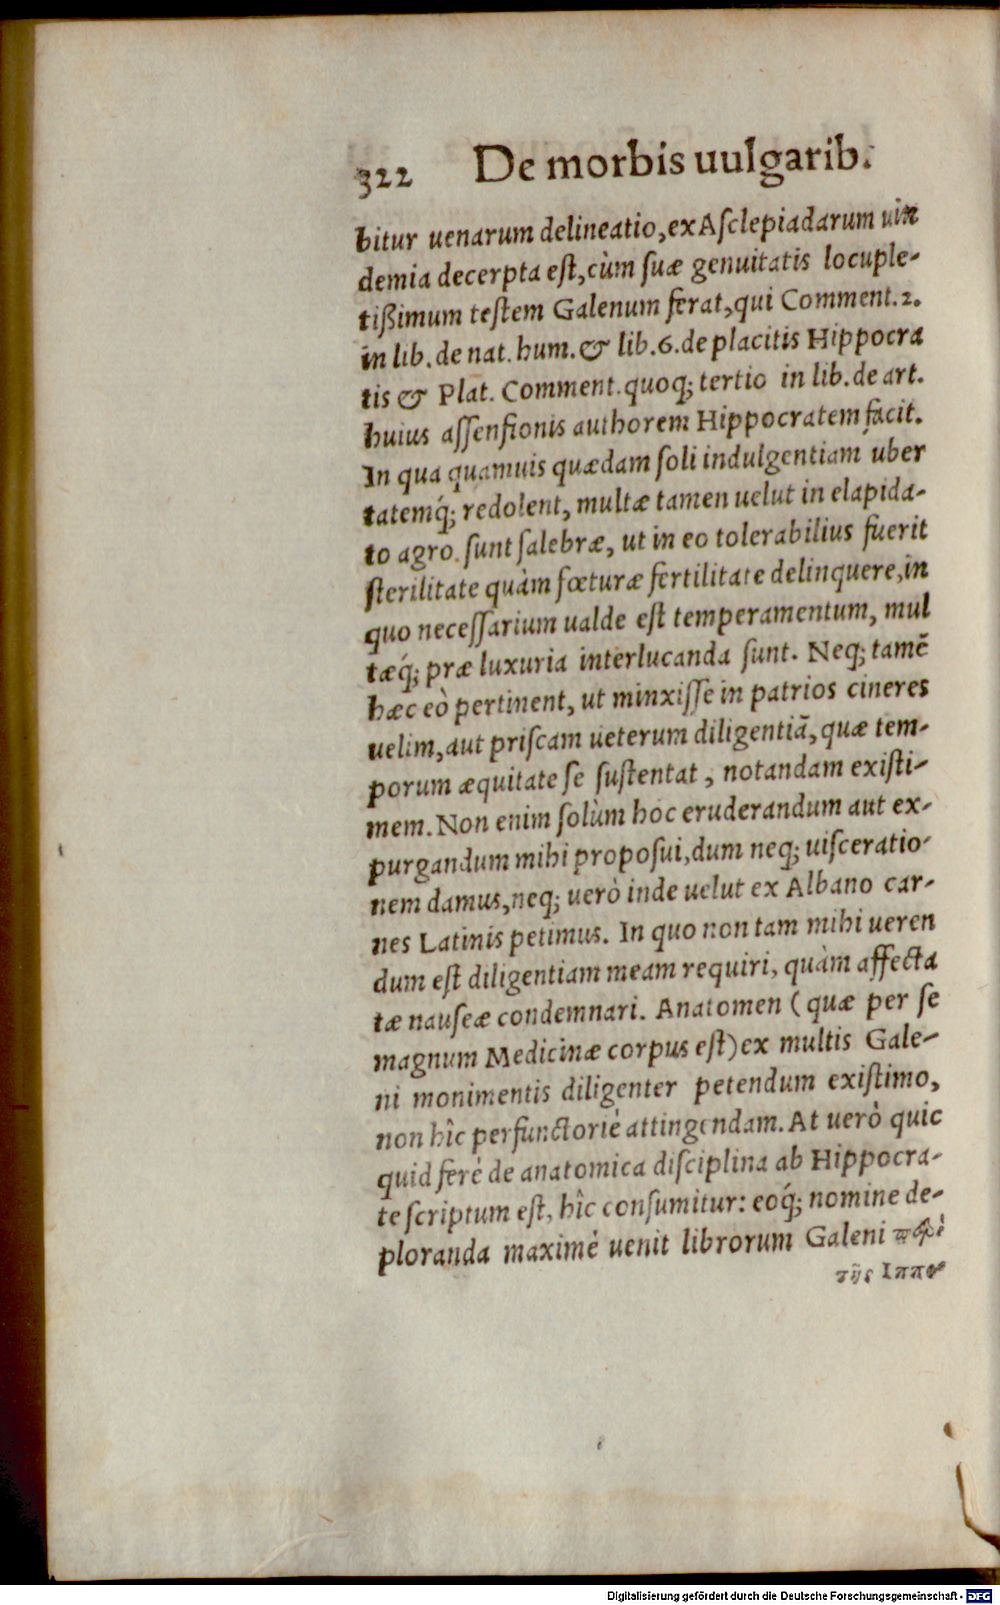 322 De morbis uulgarib.
bitur uenarum delineatio, ex Asclepiadarum uin
demia decerpta est, cùm suæ genuitatis locuple-
tißimum testem Galenum ferat, qui Comment. 2.
in lib. de nat. hum. & lib. 6. de placitis Hippocra
tis & Plat. Comment. quoq; tertio in lib. de art.
huius assensionis authorem Hippocratem facit.
In qua quamuis quædam soli indulgentiam uber
tatemq́; redolent, multæ tamen uelut in elapida-
to agro sunt salebræ, ut in eo tolerabilius fuerit
sterilitate quàm fœturæ fertilitate delinquere, in
quo necessarium ualde est temperamentum, mul
tæq́; præ luxuria interlucanda sunt. Neq; tamē
hæc eò pertinent, ut minxisse in patrios cineres
uelim, aut priscam ueterum diligentiā, quæ tem-
porum æquitate se sustentat, notandam existi-
mem. Non enim solùm hoc eruderandum aut ex-
purgandum mihi proposui, dum neq; uisceratio-
nem damus, neq; uerò inde uelut ex Albano car-
nes Latinis petimus. In quo non tam mihi ueren
dum est diligentiam meam requiri, quàm affecta
tæ nauseæ condemnari. Anatomen (quæ per se
magnum Medicinæ corpus est) ex multis Gale-
ni monimentis diligenter petendum existimo,
non hîc perfunctoriè attingendam. At uerò quic
quid ferè de anatomica disciplina ab Hippocra-
te scriptum est, hîc consumitur: eoq́; nomine de-
ploranda maximè uenit librorum Galeni περὶ
τῆς Ιππο
Digitalisierung gefördert durch die Deutsche Forschungsgemeinschaft - DFG